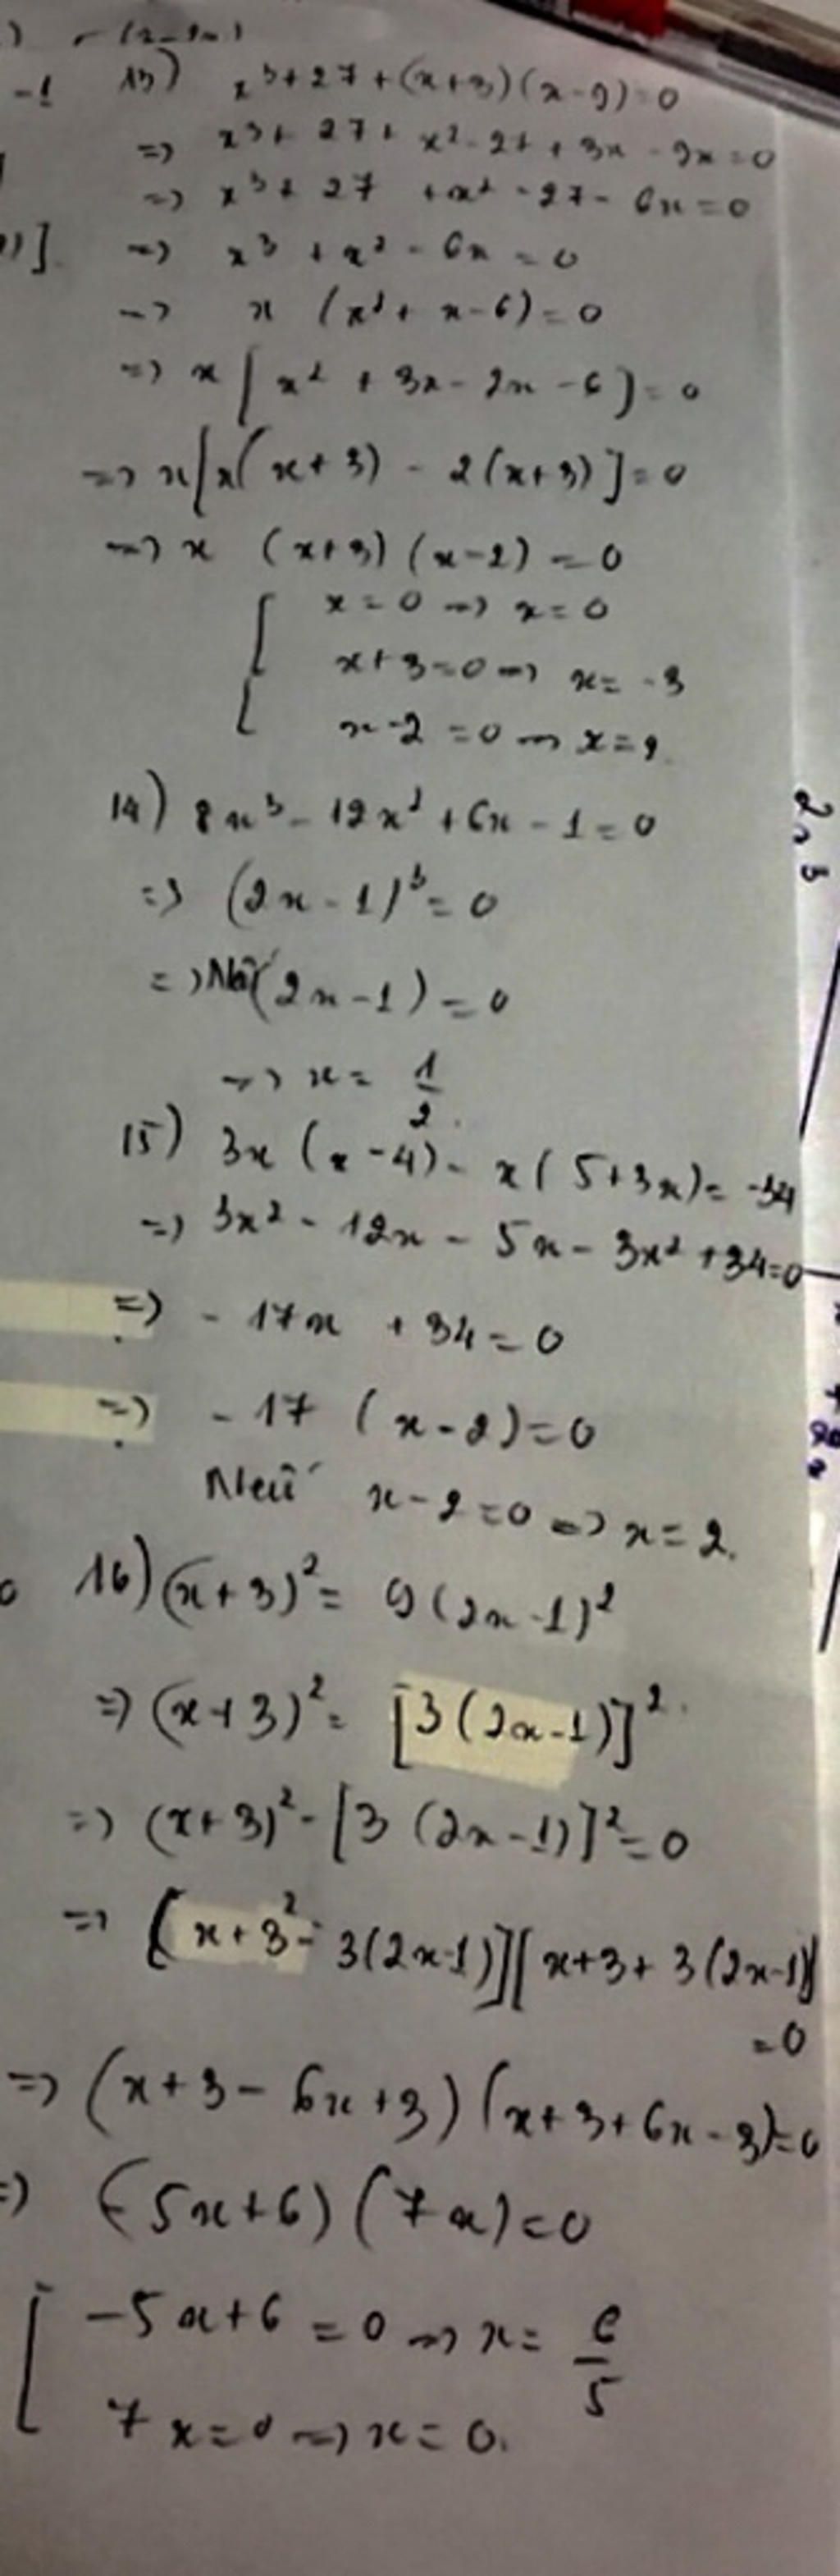 -1
13) x³+27+(x+3)(x-9)=0
=> x³+27+x²-27+3x-9x=0
=> x³+27+x²-27-6x=0
=> x³+x²-6x=0
=> x(x²+x-6)=0
=> x[x²+3x-2x-6]=0
=> x[x(x+3)-2(x+3)]=0
=> x(x+3)(x-2)=0
[ x=0 => x=0
x+3=0 => x=-3
x-2=0 => x=2
14) 8x³-12x²+6x-1=0
=> (2x-1)³=0
=> (2x-1)=0
=> x=1/2.
15) 3x(x-4)-x(5+3x)=-34
=> 3x²-12x-5x-3x²+34=0
=> -17x+34=0
=> -17(x-2)=0
Nếu x-2=0 => x=2.
16) (x+3)²=9(2x-1)²
=> (x+3)²=[3(2x-1)]²
=> (x+3)²-[3(2x-1)]²=0
=> [x+3²-3(2x-1)][x+3+3(2x-1)]
=0
=> (x+3-6x+3)(x+3+6x-3)=0
=> (-5x+6)(7x)=0
[ -5x+6=0 => x=6/5
7x=0 => x=0.